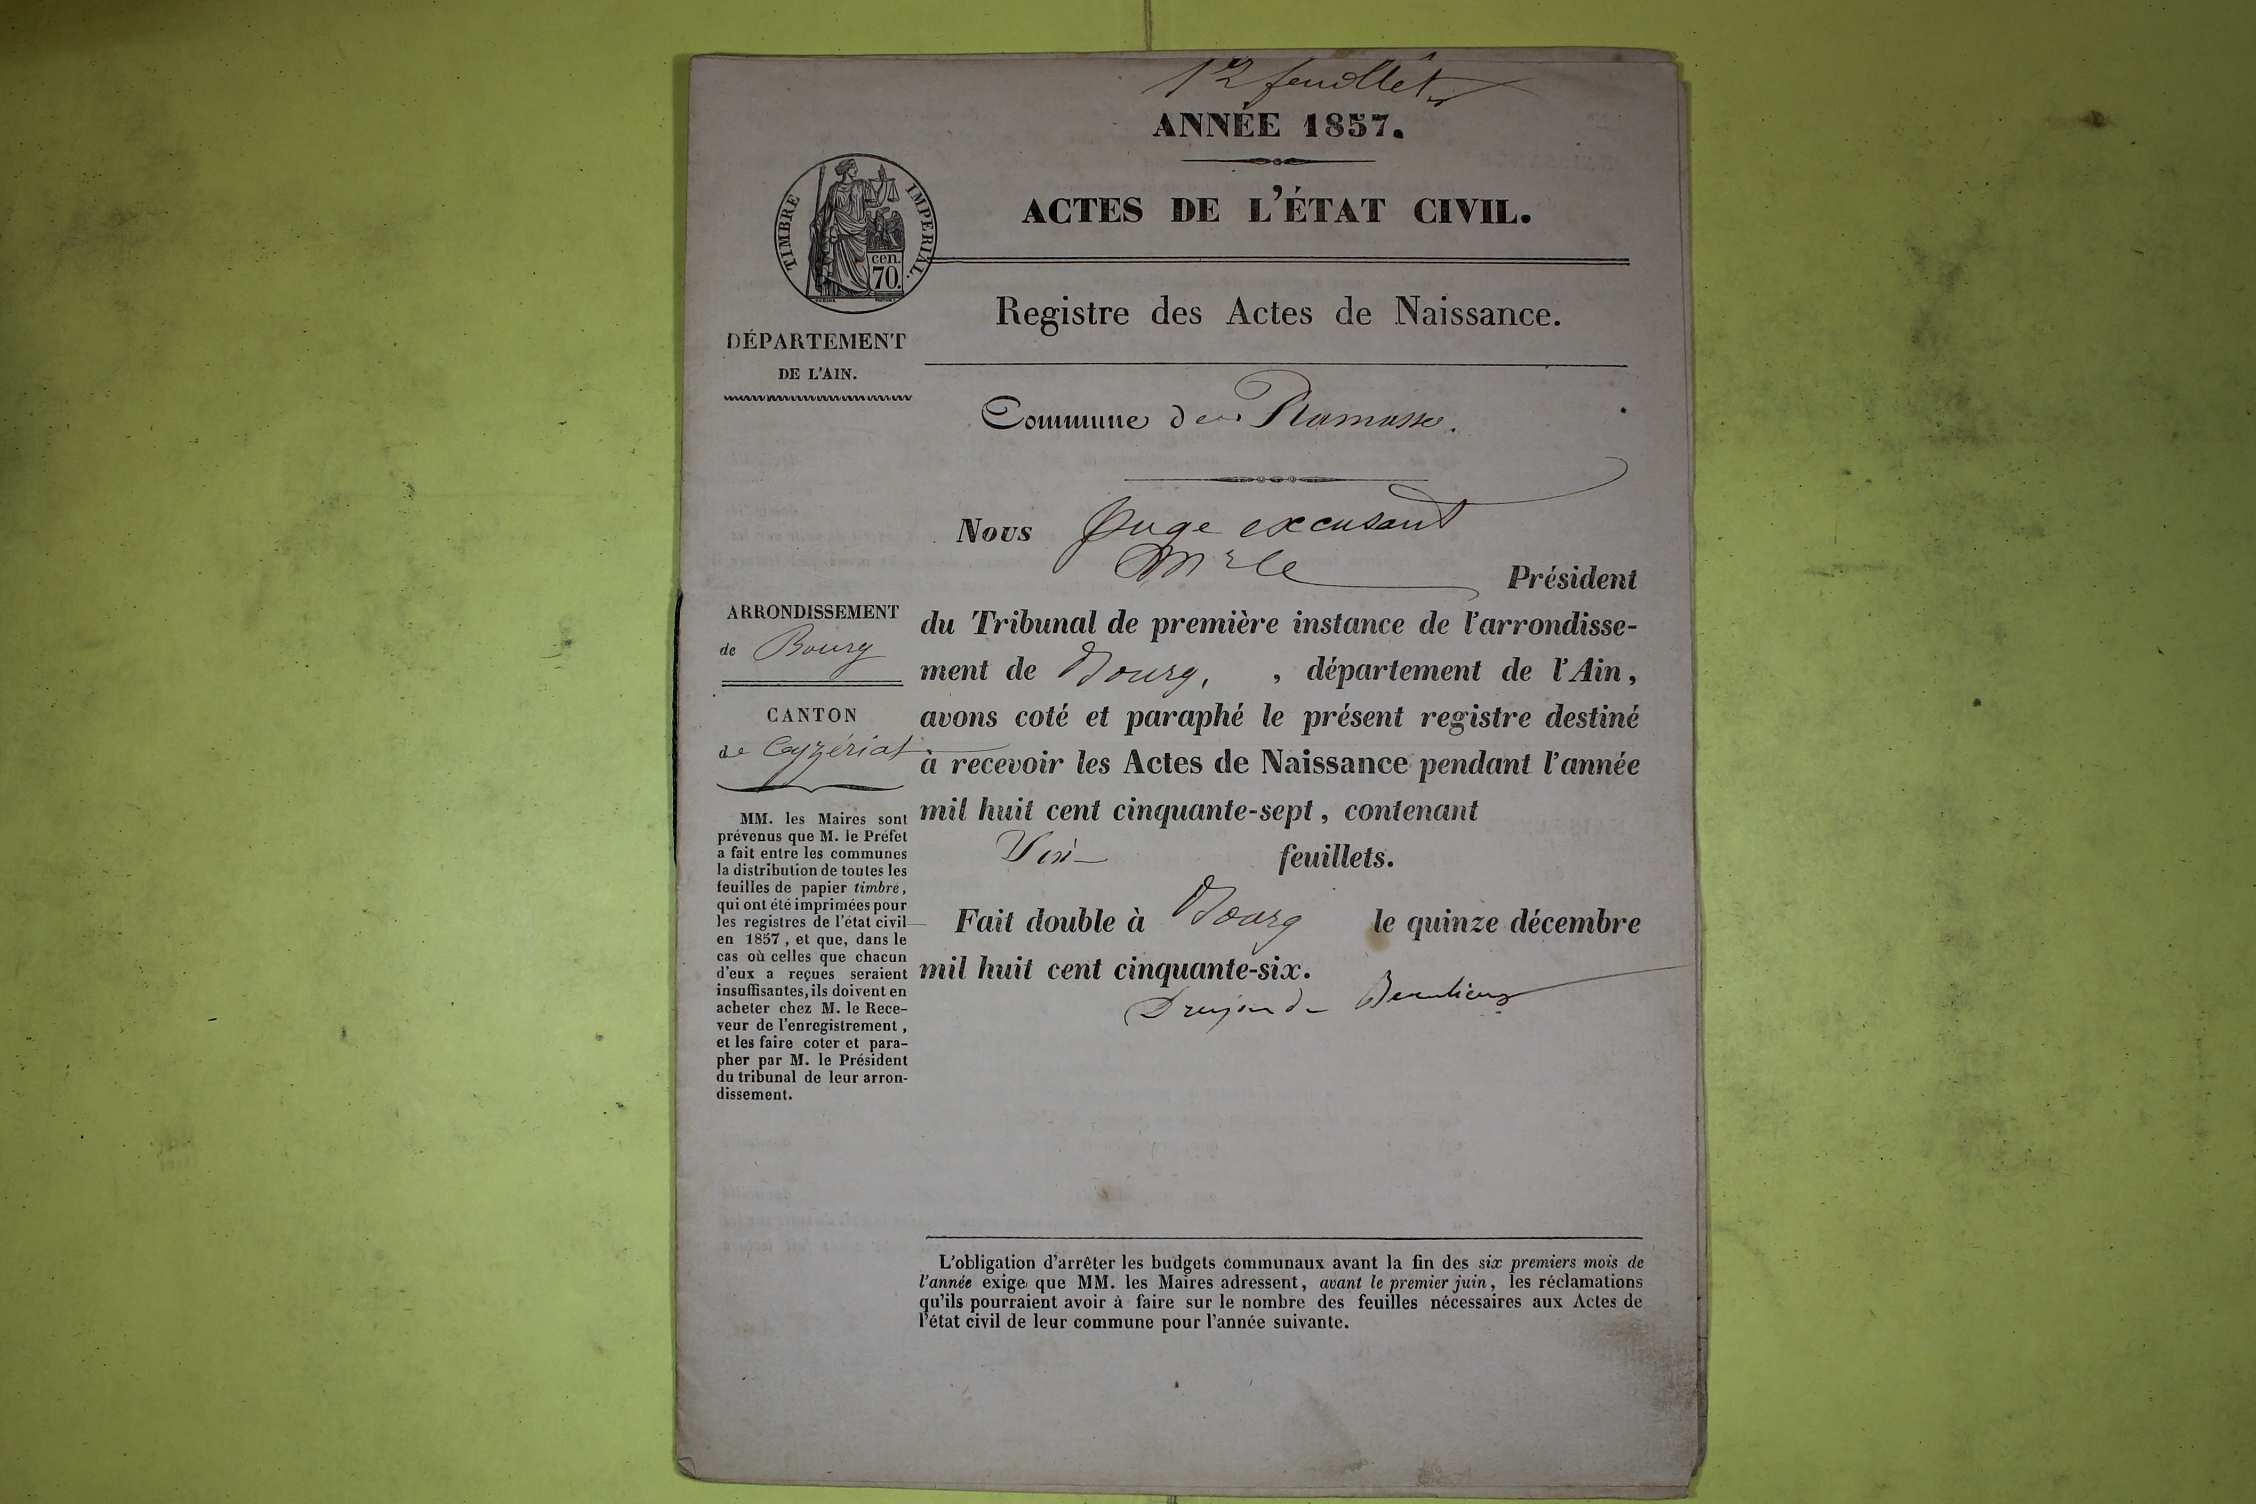 12 feuillets
ANNÉE 1857.
ACTES DE L'ÉTAT CIVIL.
TIMBRE IMPERIAL.
cen.
70.
Registre des Actes de Naissance.
DÉPARTEMENT
DE L'AIN.
Commune de Ramasse.
Nous Juge excusant
Mr le Président
ARRONDISSEMENT
de Bourg
CANTON
de Ceyzériat
MM. les Maires sont
prévenus que M. le Préfet
a fait entre les communes
la distribution de toutes les
feuilles de papier timbré,
qui ont été imprimées pour
les registres de l'état civil
en 1857, et que, dans le
cas où celles que chacun
d'eux a reçues seraient
insuffisantes, ils doivent en
acheter chez M. le Rece-
veur de l'enregistrement,
et les faire coter et para-
pher par M. le Président
du tribunal de leur arron-
dissement.
du Tribunal de première instance de l'arrondisse-
ment de Bourg, , département de l'Ain,
avons coté et paraphé le présent registre destiné
à recevoir les Actes de Naissance pendant l'année
mil huit cent cinquante-sept, contenant
feuillets.
Fait double à Bourg le quinze décembre
mil huit cent cinquante-six.
Drujon de Beaulieu
L'obligation d'arrêter les budgets communaux avant la fin des six premiers mois de
l'année exige que MM. les Maires adressent, avant le premier juin, les réclamations
qu'ils pourraient avoir à faire sur le nombre des feuilles nécessaires aux Actes de
l'état civil de leur commune pour l'année suivante.